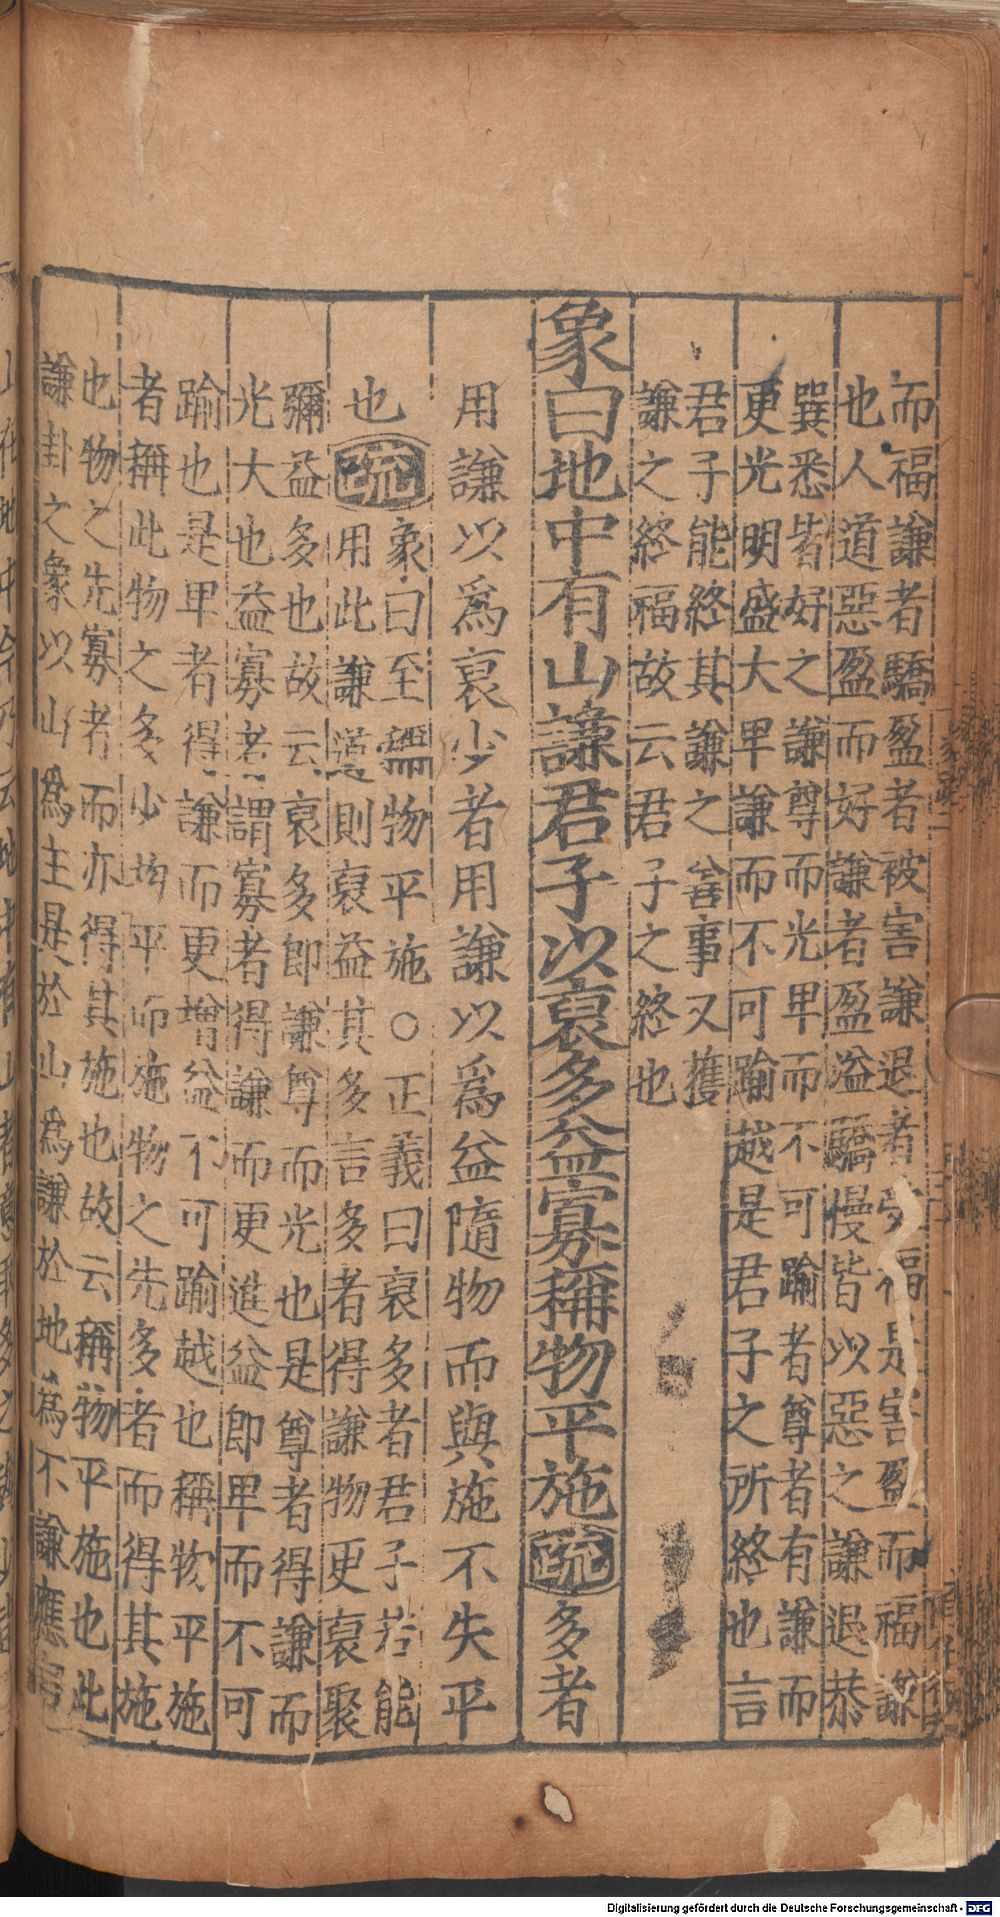 而福謙者驕盈者被害謙退者受福是害盈而福謙
也人道惡盈而好謙者盈溢驕慢皆以惡之謙退恭
巽悉皆好之謙尊而光卑而不可踰者尊者有謙而
更光明盛大卑謙而不可踰越是君子之所終也言
君子能終其謙之善事又獲
謙之終福故云君子之終也
象曰地中有山謙君子以裒多益寡稱物平施疏多者
用謙以爲裒少者用謙以爲益隨物而與施不失平
也疏
象曰至稱物平施○正義曰裒多者君子若能
用此謙道則裒益其多言多者得謙物更裒聚
彌益多也故云裒多即謙尊而光也是尊者得謙而
光大也益寡者謂寡者得謙而更進益即卑而不可
踰也是卑者得謙而更增益不可踰越也稱物平施
者稱此物之多少均平而施物之先多者而得其施
也物之先寡者而亦得其施也故云稱物平施也此
謙卦之象以山爲主是於山爲謙於地爲不謙應言
Digitalisierung gefördert durch die Deutsche Forschungsgemeinschaft - DFG